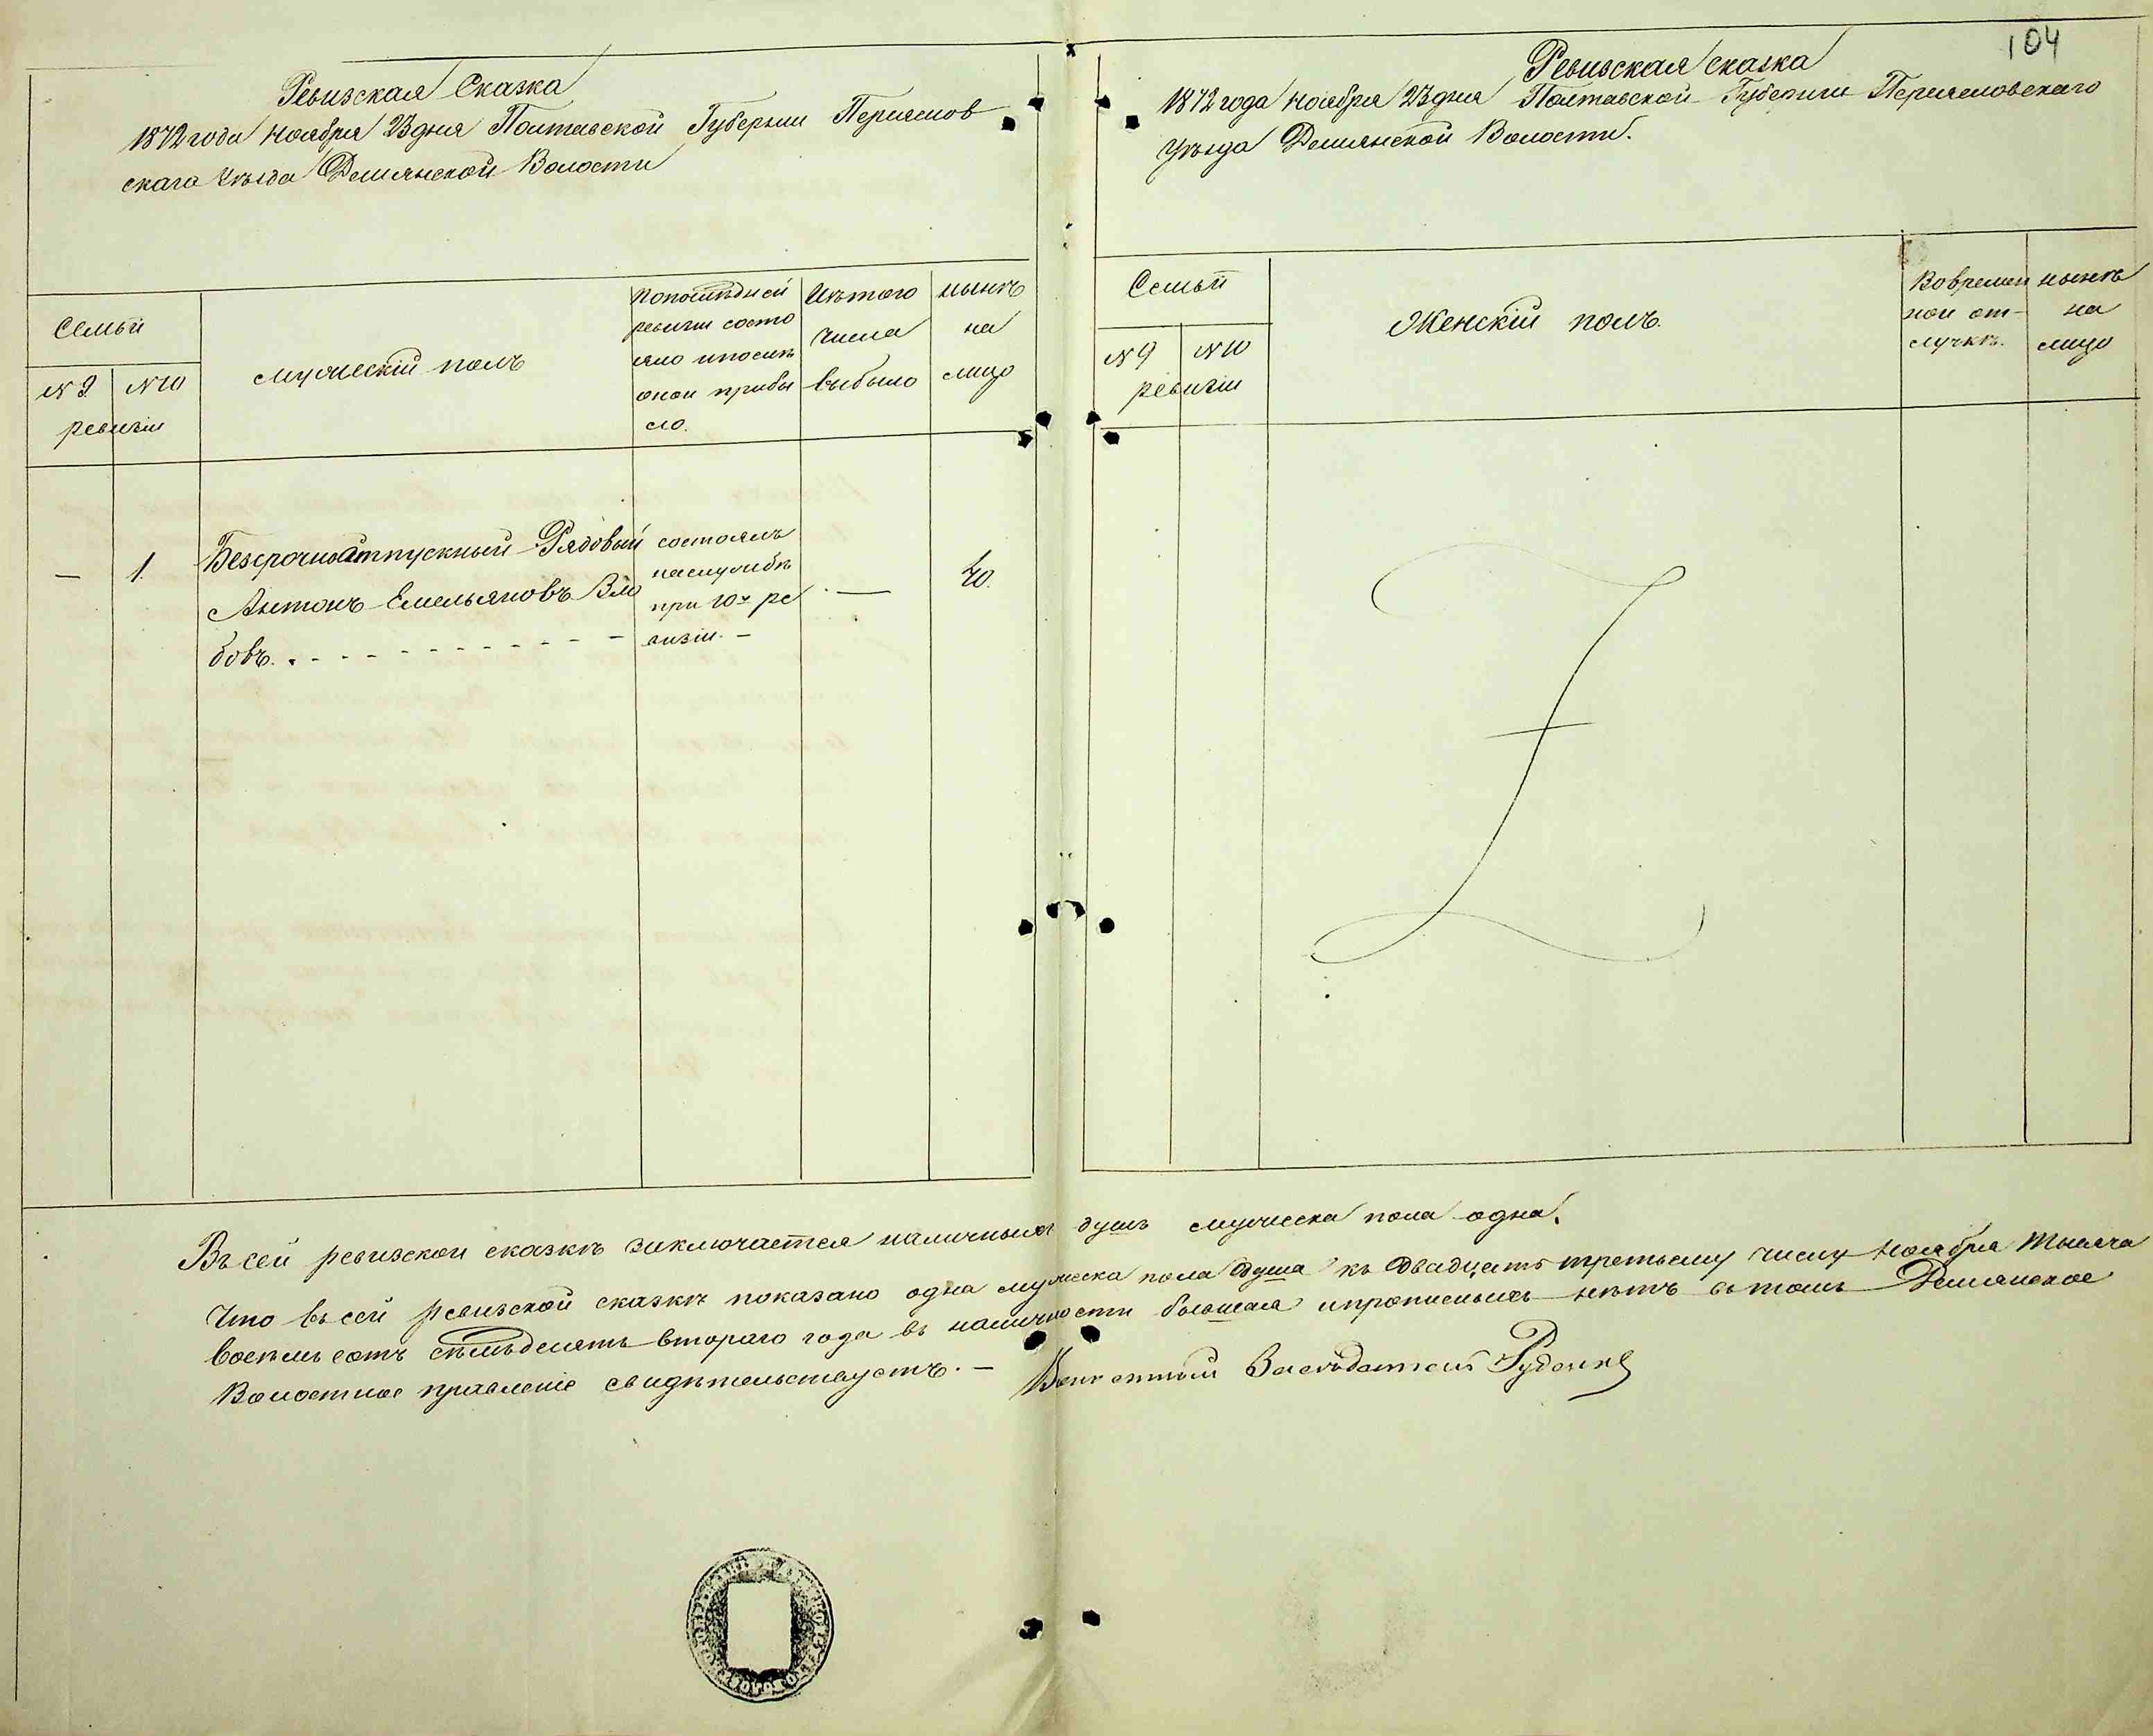 104
Ревизская Сказка
1872 года Ноября 23 дня Полтавской Губернии Переяслов
скаго Уѣзда Демянской Волости
Семьи
№ 9 №10
ревизіи
мужескій полъ
Попослѣдней
ревизіи состо
яло ипослѣ
оной прибы
ло.
Изтого
числа
выбыло
нынѣ
на
лицо
— 1. Безсрочноотпускный Рядовый
Антонъ Емельяновъ Зло
бовъ.
состоялъ
наслужбѣ
при 10й ре
визіи. —
—
40.
Ревизская сказка
1872 года Ноября 23 дня Полтавской Губернии Переясловскаго
Уѣзда Демянской Волости.
Семьи
№ 9 №10
ревизіи
Женскій полъ.
Вовремен
ной от-
лучкѣ.
нынѣ
на
лицо
Въ сей ревизской сказкѣ заключается наличныхъ душъ мужеска пола одна.
Что въ сей ревизской сказкѣ показано одна мужеска пола душа къ двадцать третьему числу Ноября тысяча
восемьсотъ семьдесятъ втораго года въ наличности бывшая ипрописныхъ нѣтъ въ томъ Демянское
Волостное правленіе свидѣтельствуетъ. — Засѣдатель Руденко